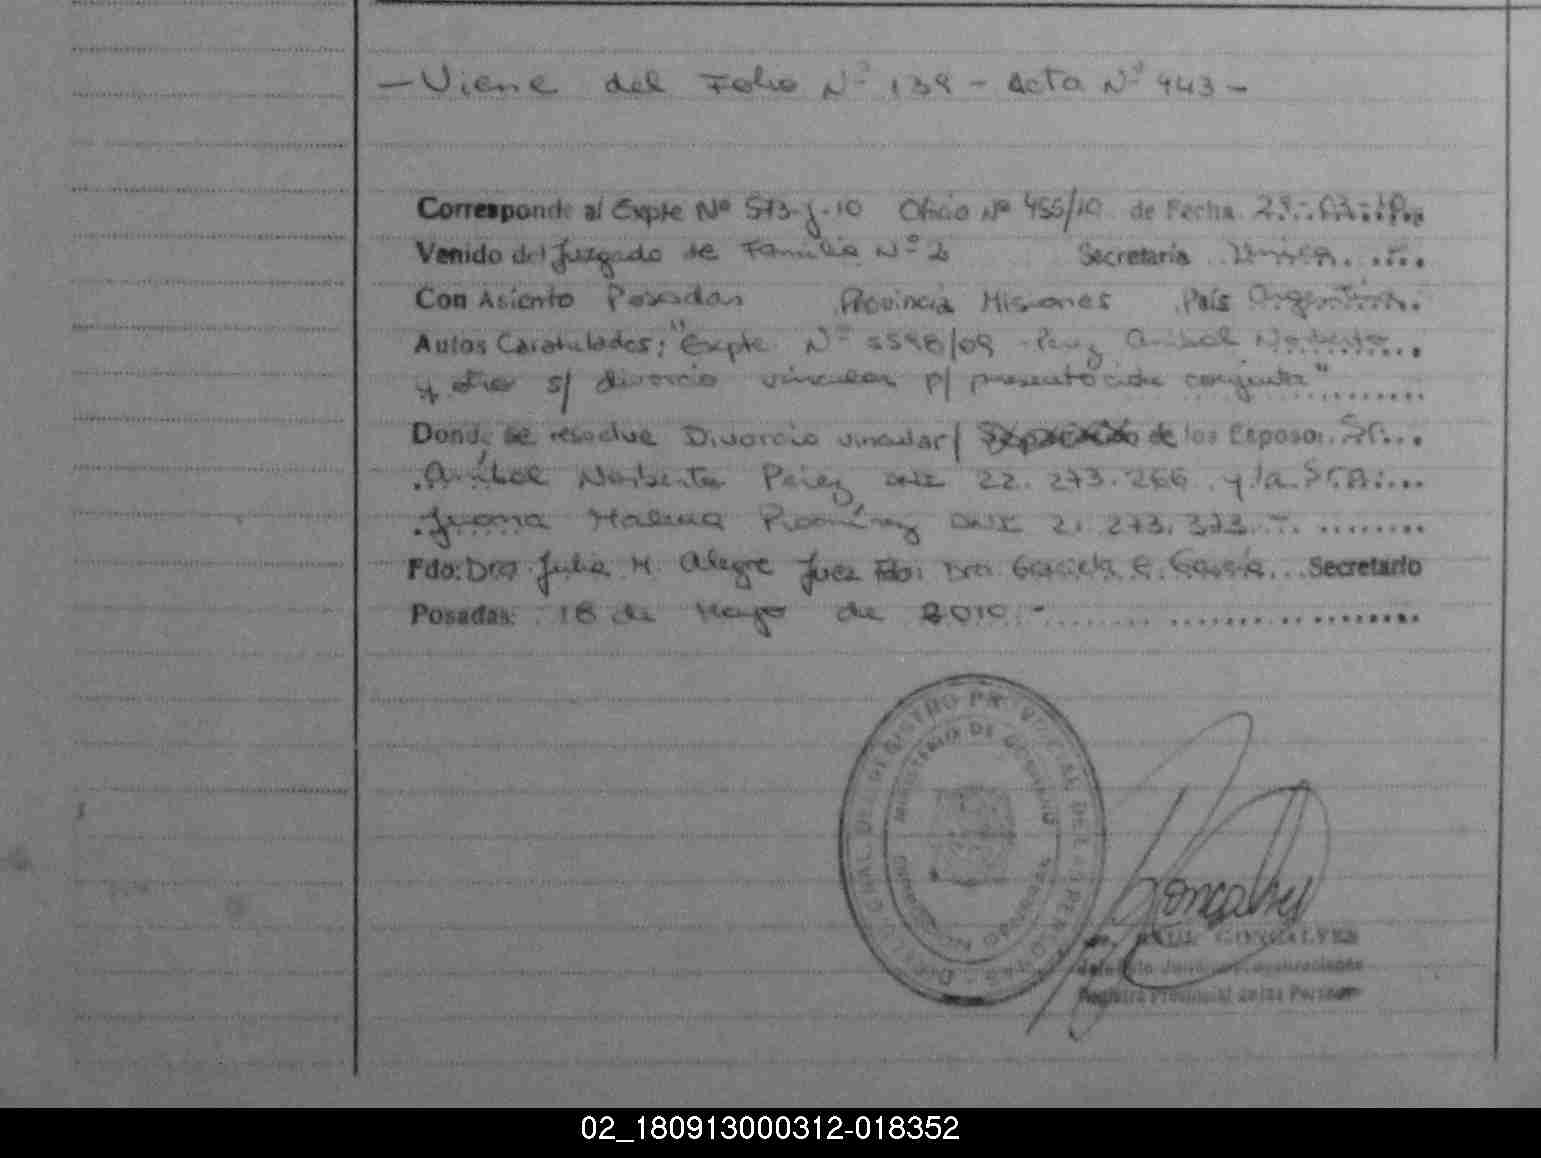 - Viene del Folio Nº 139 - Acta Nº 443 -
Corresponde al Expte Nº 573-J-10 Oficio Nº 455/10 de Fecha 29-03-10
Venido del Juzgado de Familia Nº 2 Secretaria Unica
Con Asiento Posadas Provincia Misiones País Argentina
Autos Caratulados: "Expte Nº 5598/09 - Perez Anibal Norberto
y otra s/ divorcio vincular p/ presentación conjunta"
Donde se resuelve Divorcio vincular / de los Esposos Sr.
Aníbal Norberto Perez DNI 22.273.266 y la Sra.
Juana Ramírez DNI 21.273.373
Fdo: Dra. Julia M. Alegre Juez Fdo: Dra. Graciela E. García Secretario
Posadas: 18 de Mayo de 2010 -
MINISTERIO DE GOBIERNO
Goncalves
RAUL GONCALVES
Registro Provincial de las Personas
02_180913000312-018352